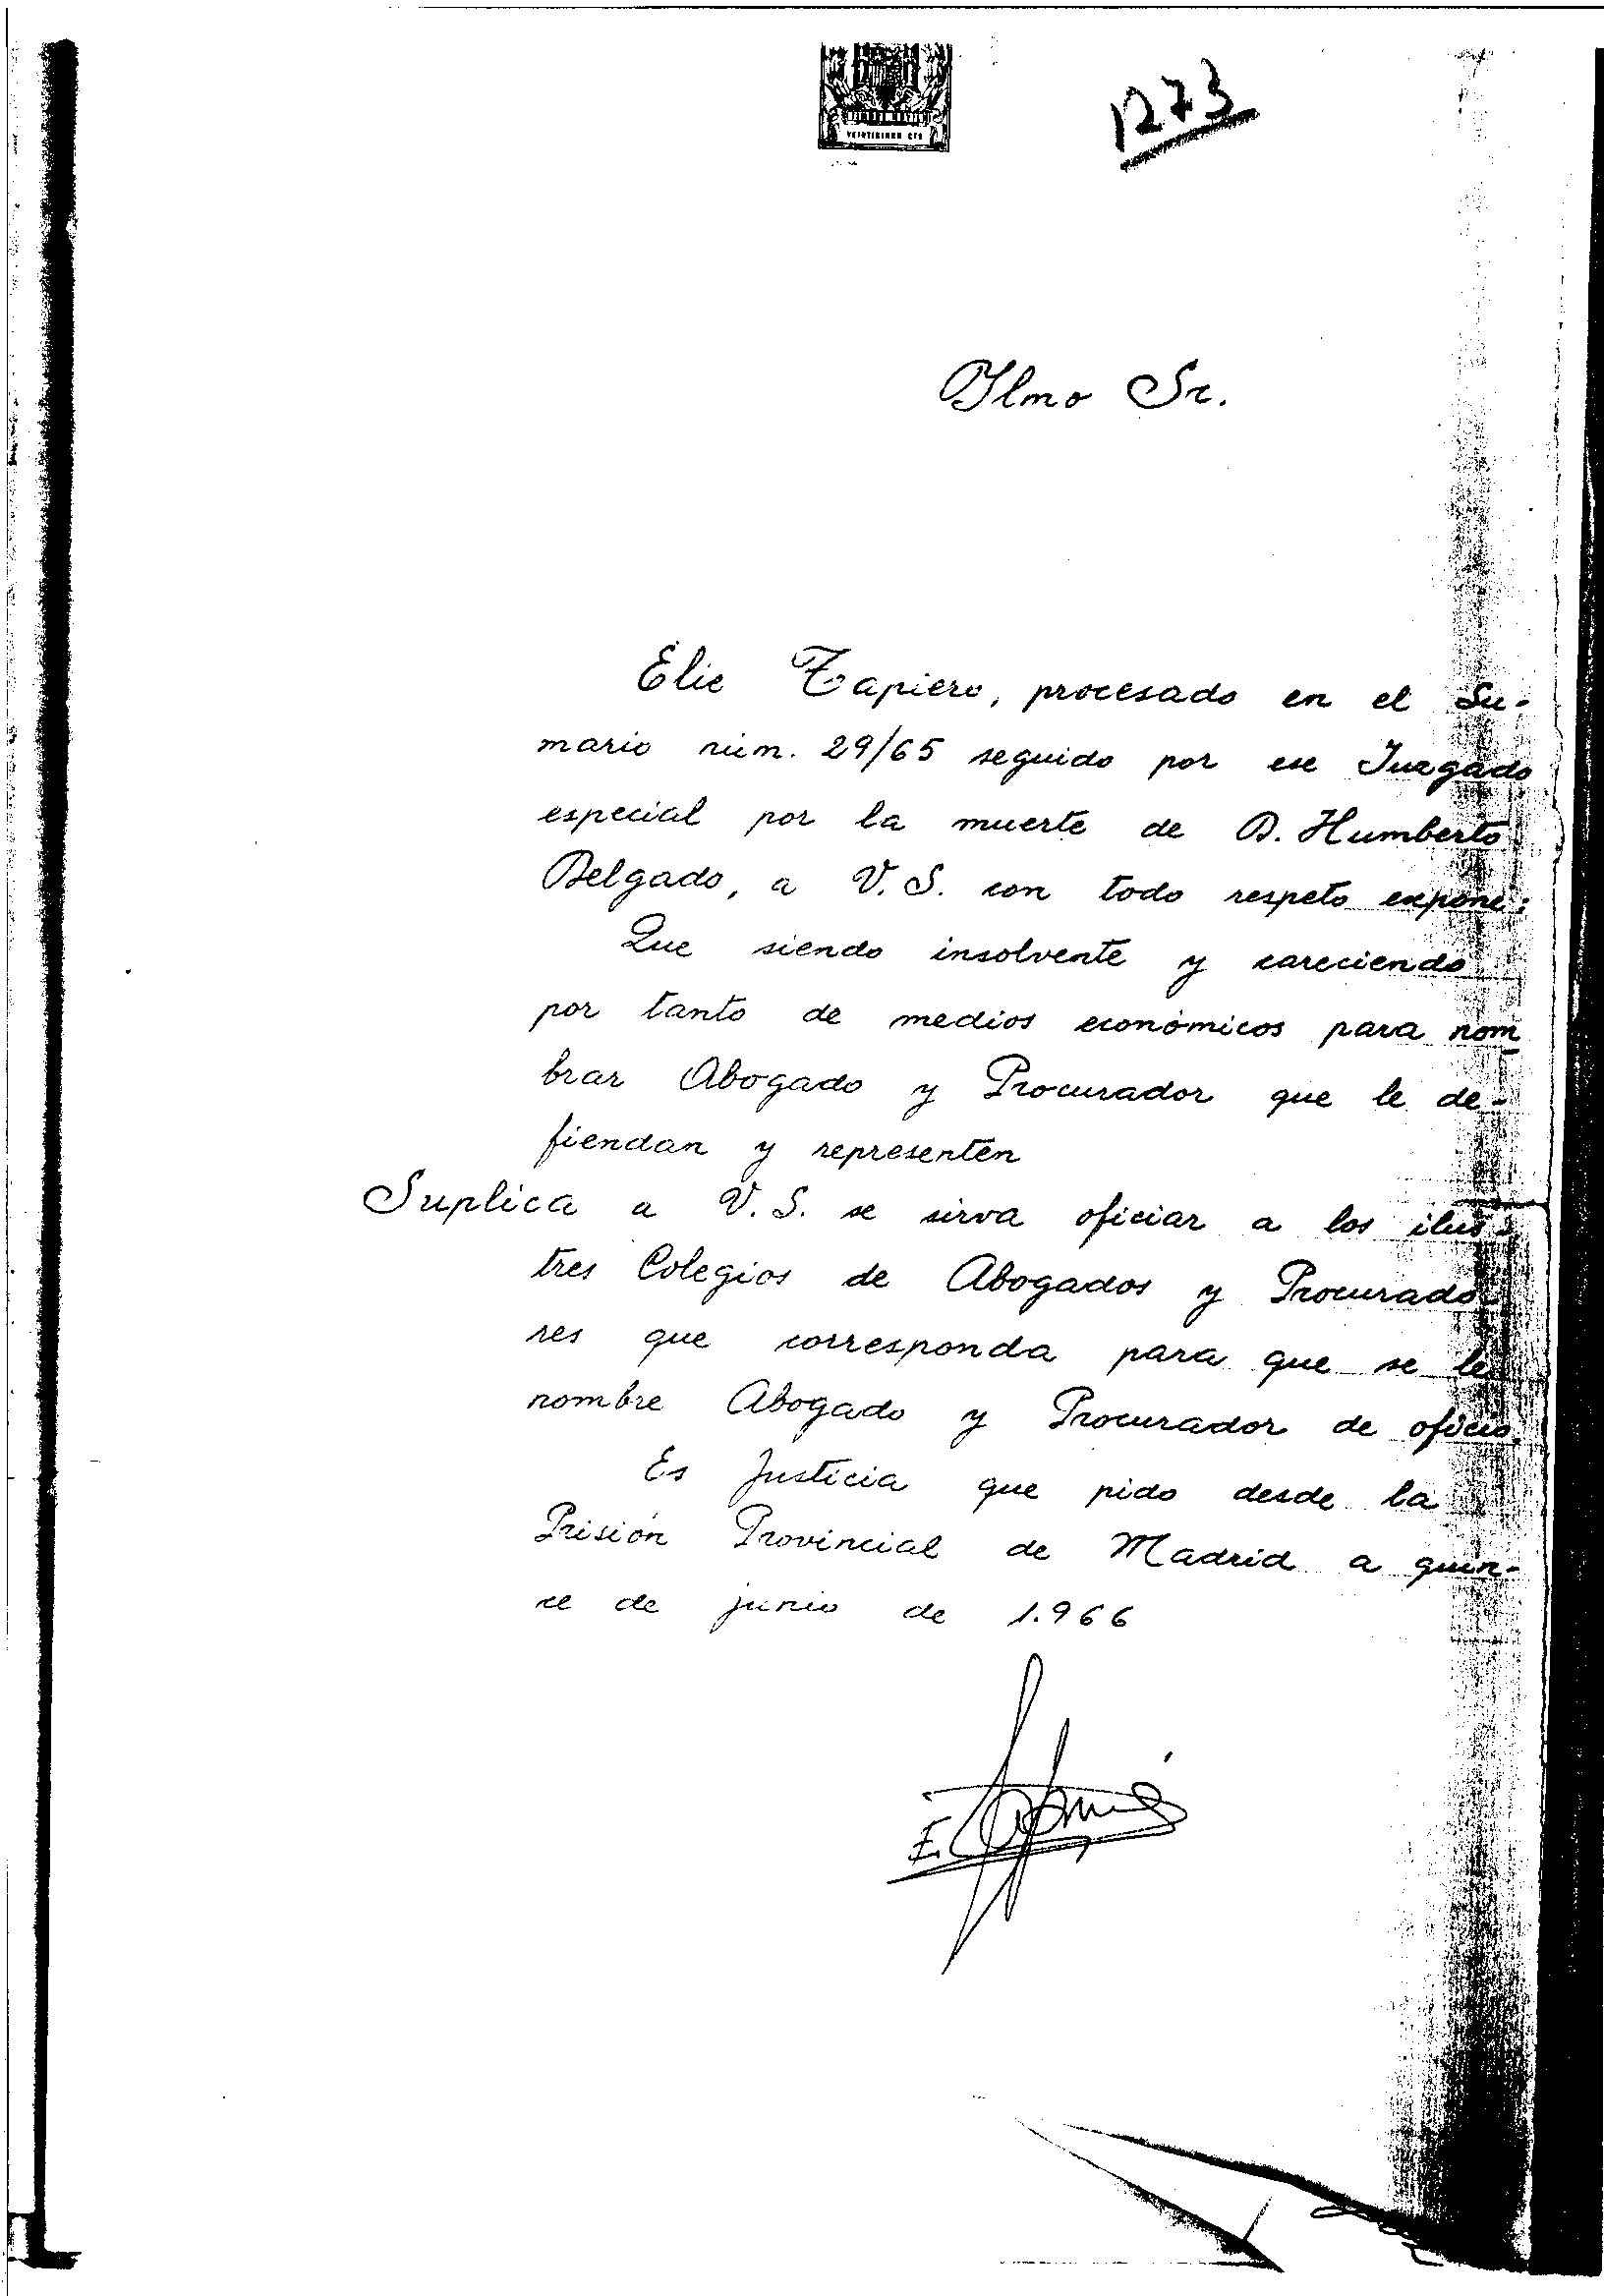 VEINTICINCO CTS
1273
Ilmo Sr.
Elie Tapiero, procesado en el Su-
mario núm. 29/65 seguido por ese Juzgado
especial por la muerte de D. Humberto
Delgado, a V. S. con todo respeto expone:
Que siendo insolvente y careciendo
por tanto de medios económicos para nom
brar Abogado y Procurador que le de-
fiendan y representen
Suplica a V. S. se sirva oficiar a los ilus-
tres Colegios de Abogados y Procurado-
res que corresponda para que se le
nombre Abogado y Procurador de oficio.
Es Justicia que pido desde la
Prisión Provincial de Madrid a quin-
ce de junio de 1.966